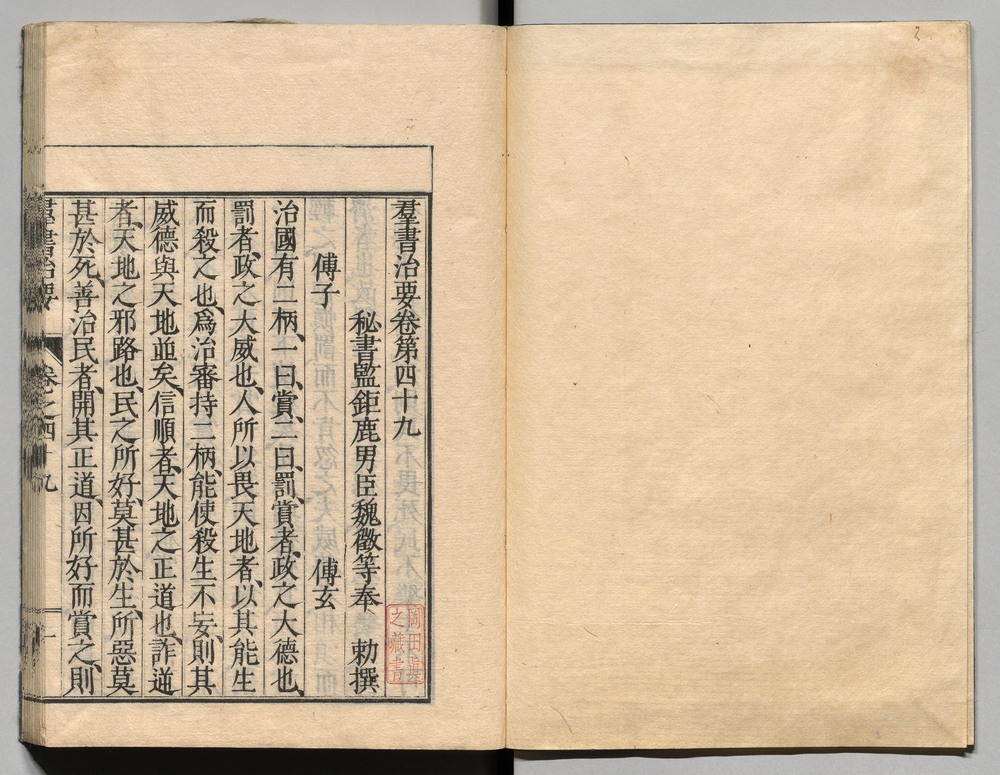 羣書治要卷第四十九
秘書監鉅鹿男臣魏徵等奉　勅撰
傅子　傅玄
治國有二柄、一曰賞、二曰罰、賞者、政之大德也、
罰者、政之大威也、人所以畏天地者、以其能生
而殺之也、爲治審持二柄、能使殺生不妄、則其
威德與天地並矣、信順者、天地之正道也、詐逆
者、天地之邪路也、民之所好、莫甚於生、所惡莫
甚於死、善治民者、開其正道、因所好而賞之、則
羣書治要　卷之四十九　一
岡田
之藏書
2